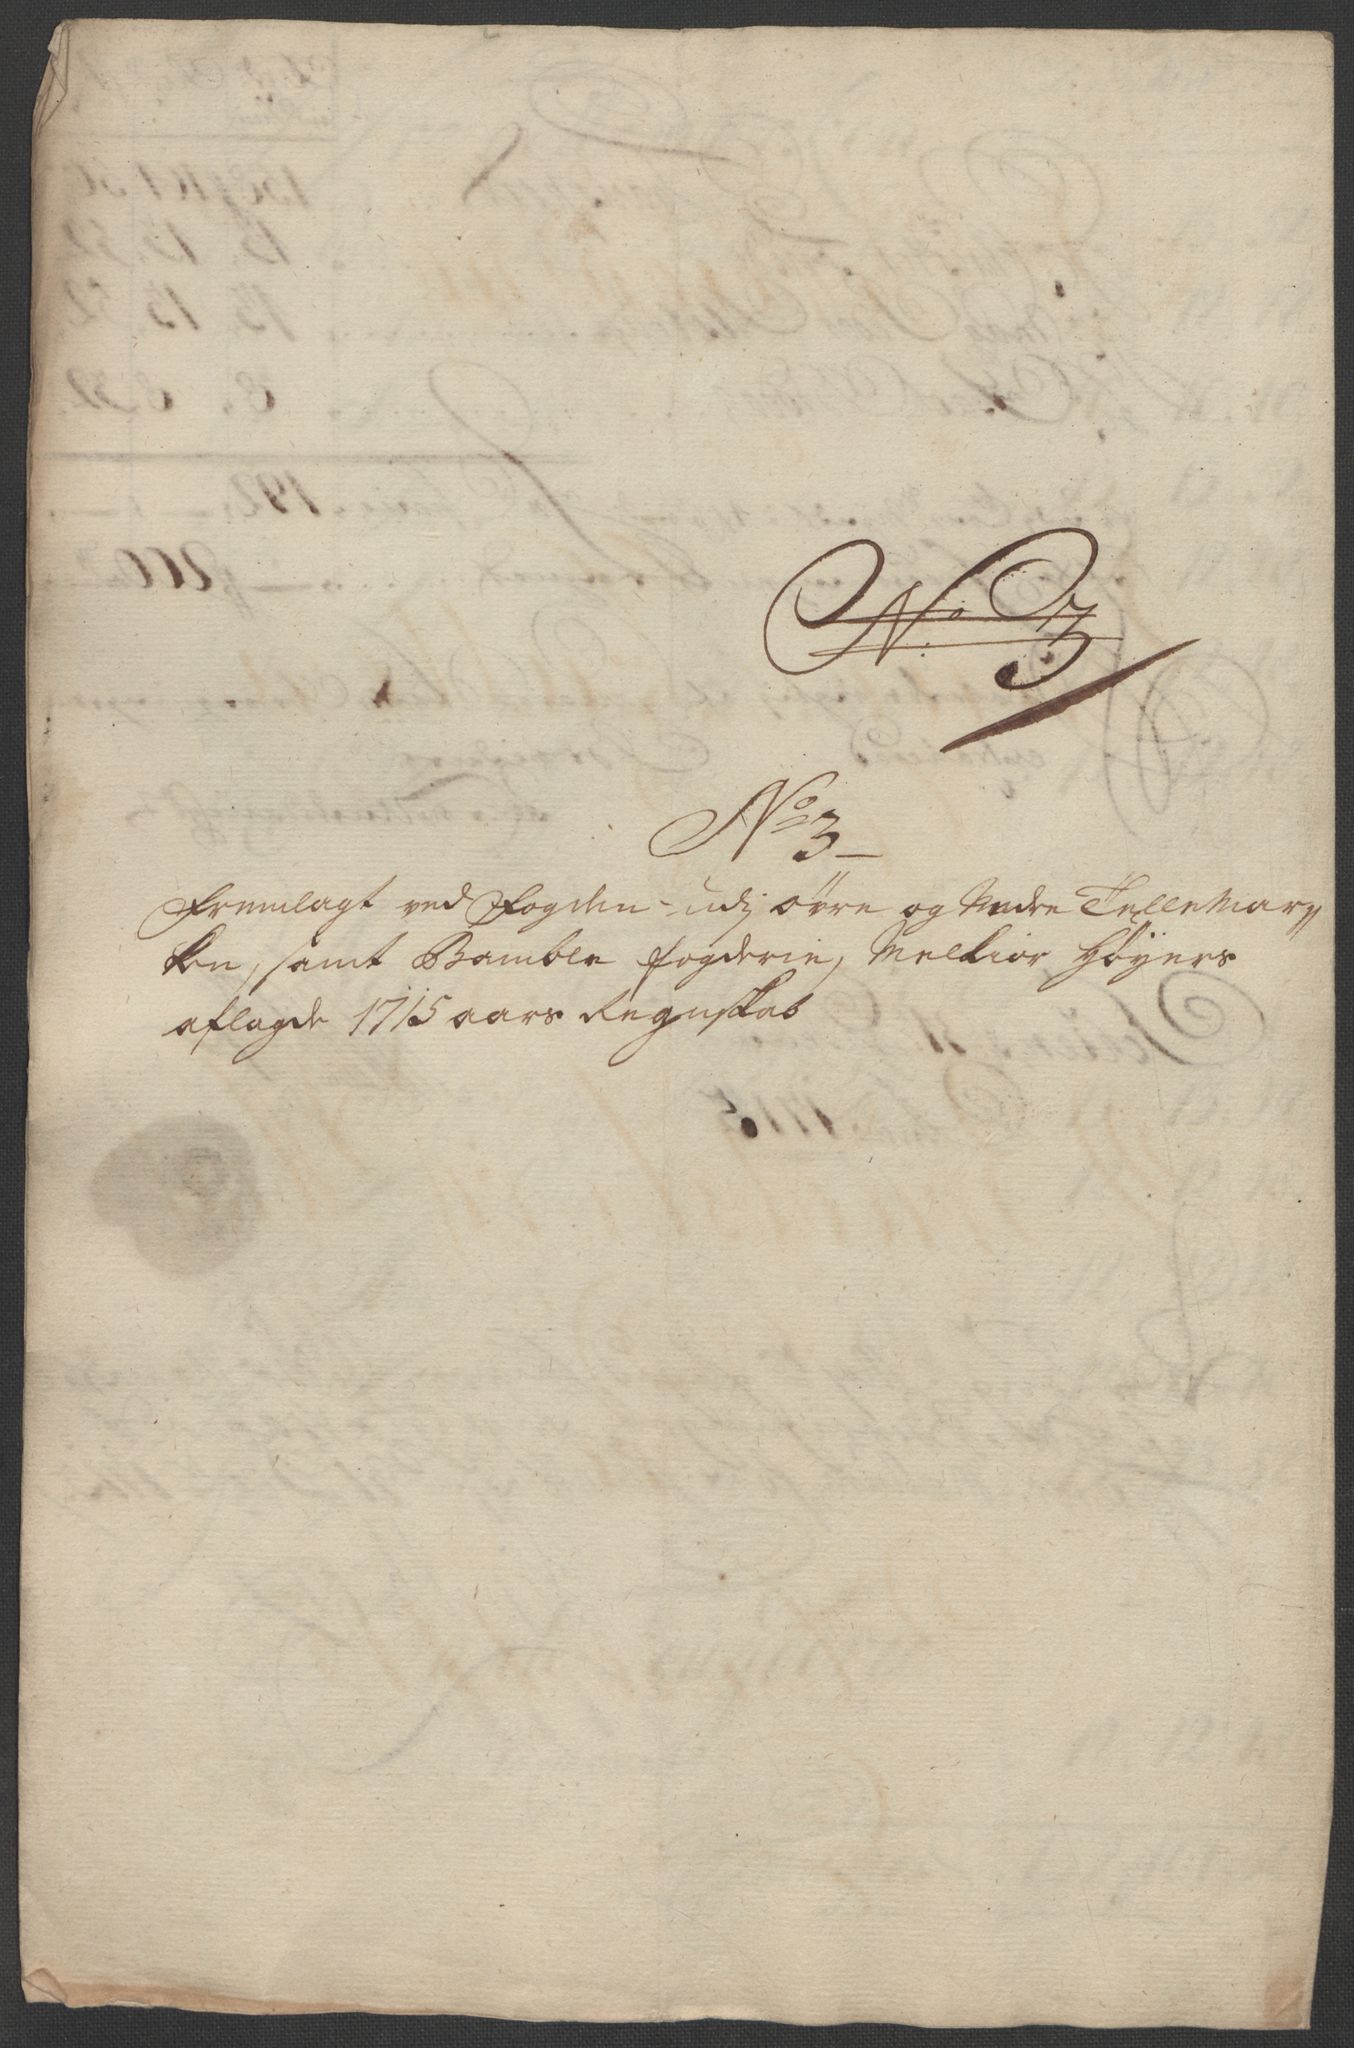 No 3
No 3
Fremlagt ved Fogden udj øvre og Nedre Tellemar-
ken, samt Bamble fogderie, Melkior Høyers
aflagde 1715 aars Regnskab